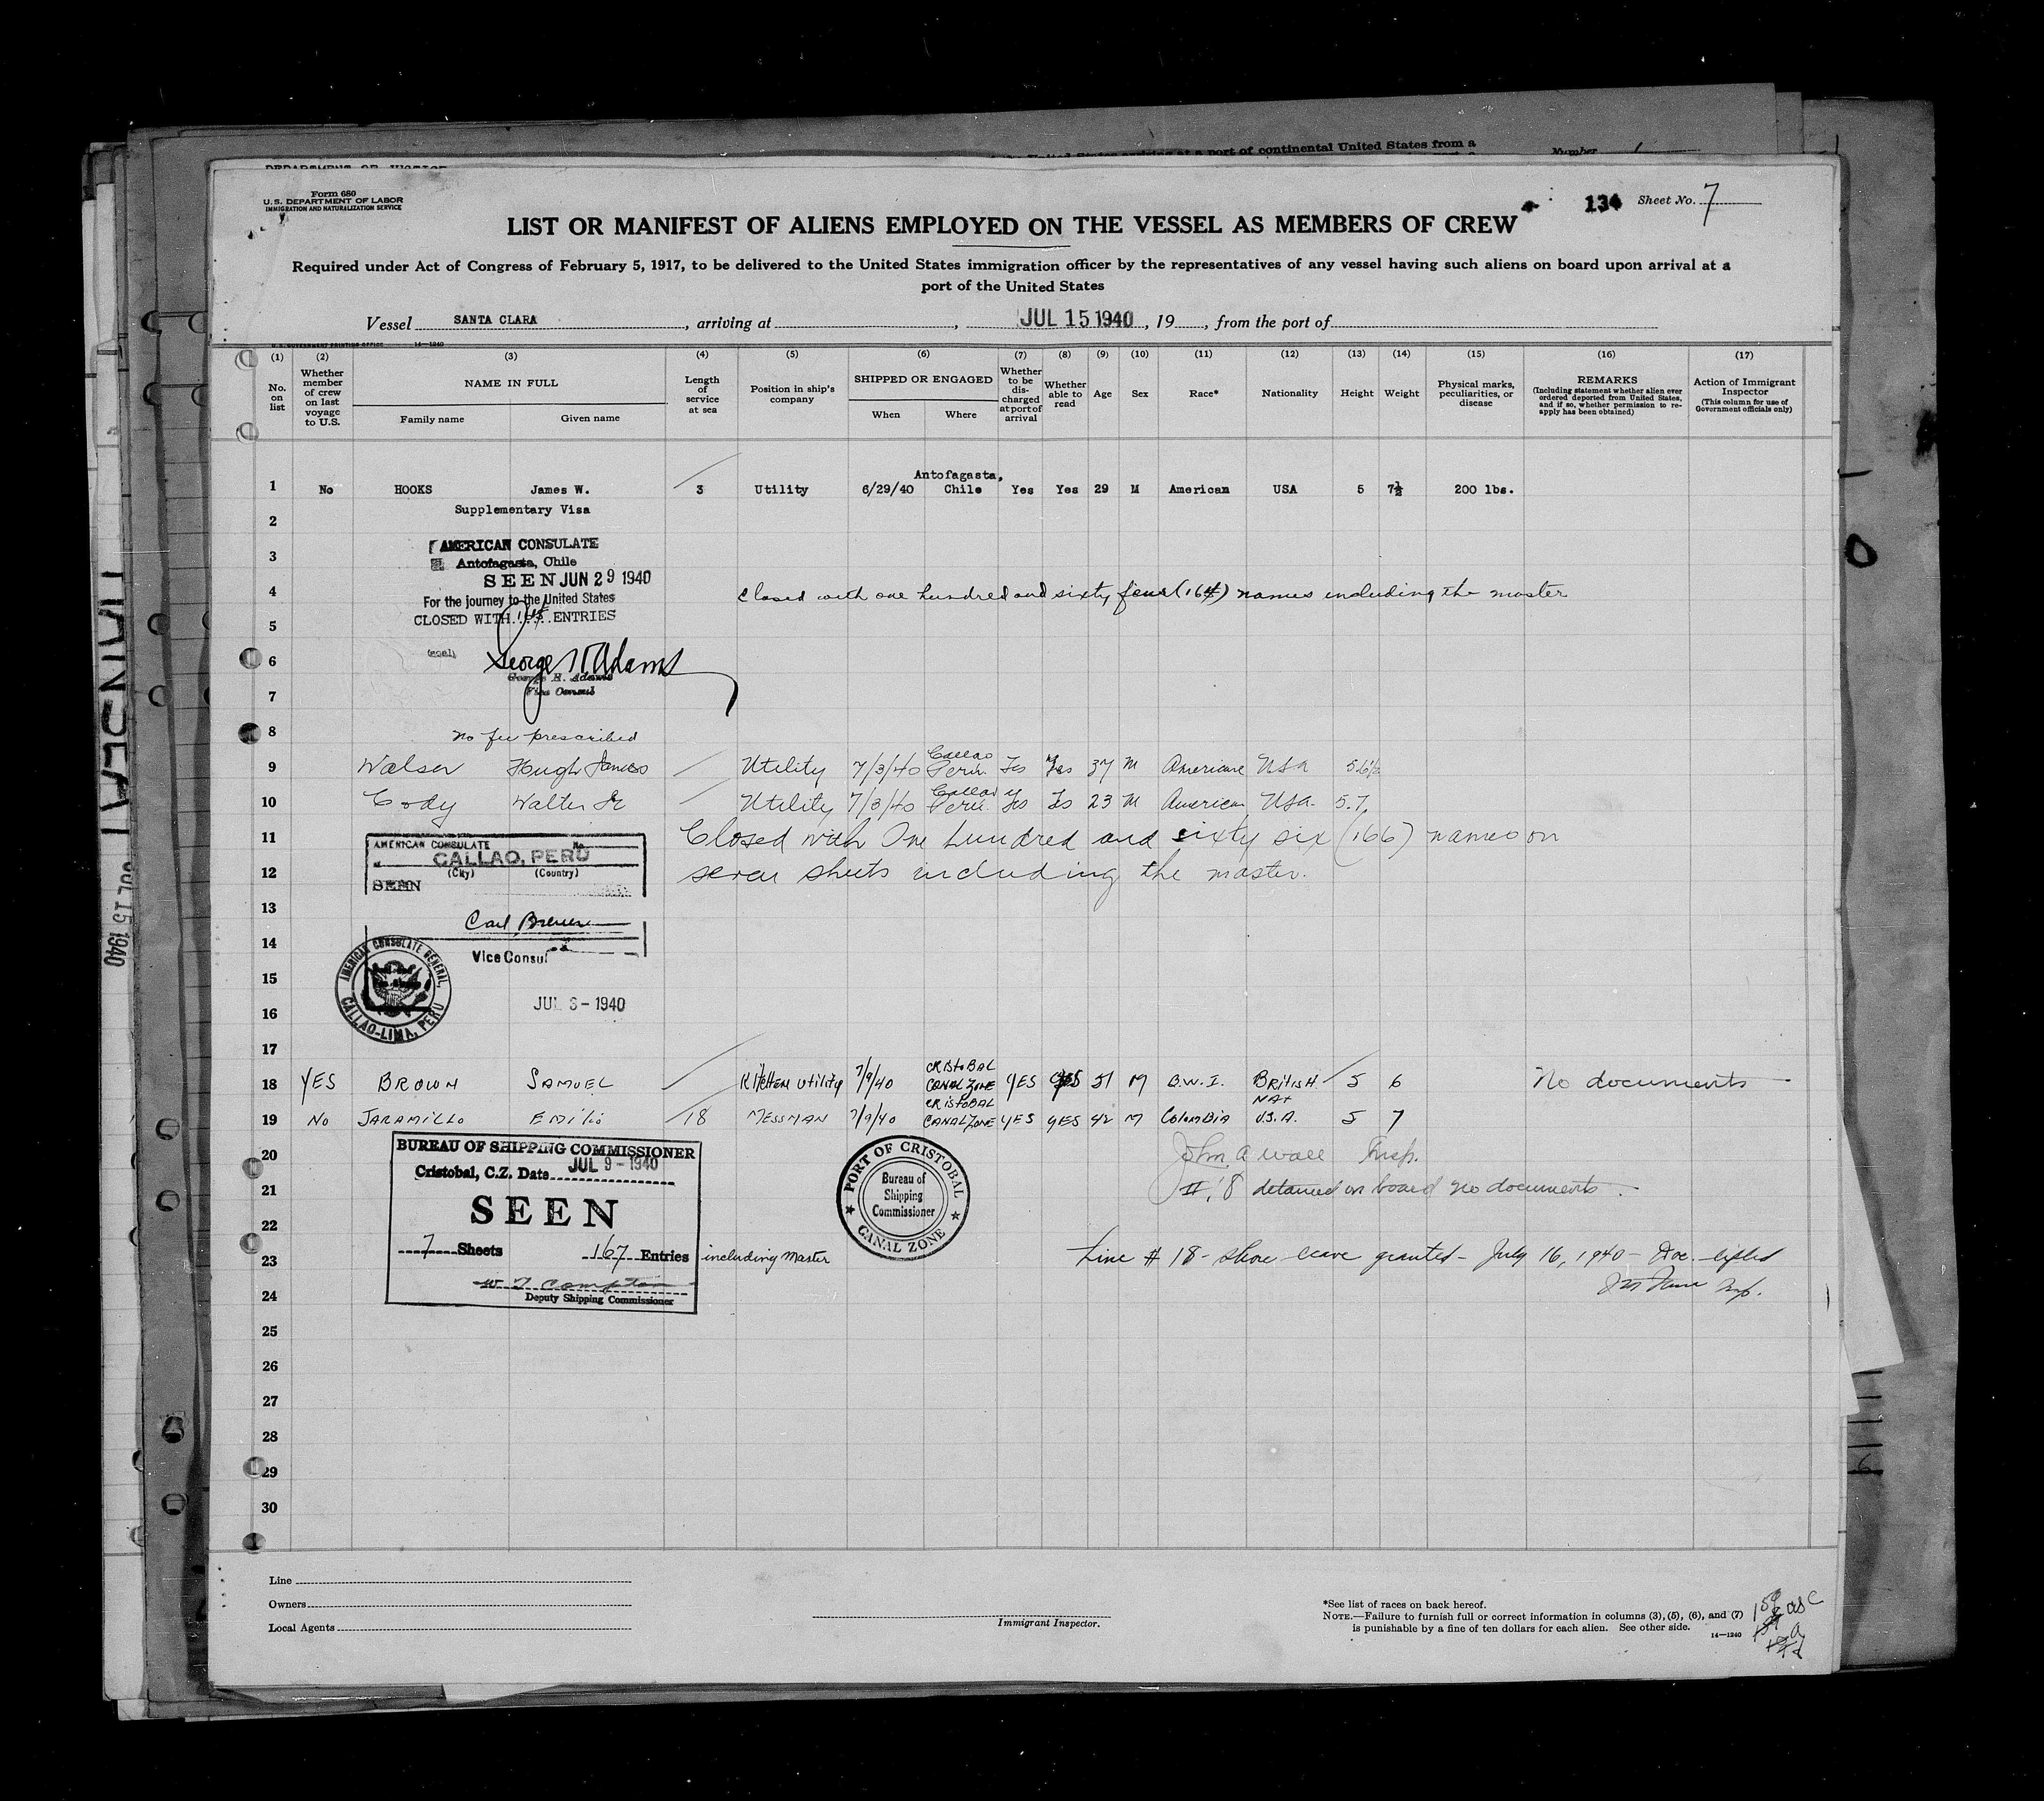 Form 680
U.S. DEPARTMENT OF LABOR
IMMIGRATION AND NATURALIZATION SERVICE
134 Sheet No. 7
LIST OR MANIFEST OF ALIENS EMPLOYED ON THE VESSEL AS MEMBERS OF CREW
Required under Act of Congress of February 5, 1917, to be delivered to the United States immigration officer by the representatives of any vessel having such aliens on board upon arrival at a
port of the United States
Vessel SANTA CLARA, arriving at , JUL 15 1940, 19 , from the port of
U.S. GOVERNMENT PRINTING OFFICE 14—1240
(1) (2) (3) (4) (5) (6) (7) (8) (9) (10) (11) (12) (13) (14) (15) (16) (17)
No. on list
Whether member of crew on last voyage to U.S.
NAME IN FULL
Family name Given name
Length of service at sea
Position in ship's company
SHIPPED OR ENGAGED
When Where
Whether to be discharged at port of arrival
Whether able to read
Age
Sex
Race*
Nationality
Height
Weight
Physical marks, peculiarities, or disease
REMARKS
(Including statement whether alien ever ordered deported from United States, and if so, whether permission to reapply has been obtained)
Action of Immigrant Inspector
(This column for use of Government officials only)
1 No HOOKS James W. 3 Utility 6/29/40 Antofagasta, Chile Yes Yes 29 M American USA 5 7½ 200 lbs.
Supplementary Visa
2
3 AMERICAN CONSULATE
Antofagasta, Chile
SEEN JUN 29 1940
4 For the journey to the United States
closed with one hundred and sixty four (164) names including the master
5 CLOSED WITH ENTRIES
6 (seal) George H Adams
George H. Adams
7 Vice Consul
8 No fee prescribed
9 Walser Hugh James Utility 7/3/40 Callao Peru Yes Yes 37 M American USA 5 6½
10 Cody Walter Jr Utility 7/3/40 Callao Peru Yes Yes 23 M American USA 5.7
11 Closed with One hundred and sixty six (166) names on
12 seven sheets including the master.
AMERICAN CONSULATE No.
at CALLAO, PERU
(City) (Country)
SEEN
13
14 Vice Consul
15 AMERICAN CONSULATE GENERAL, CALLAO-LIMA, PERU
16 JUL 6 - 1940
17
18 YES BROWN SAMUEL KITCHEN UTILITY 7/9/40 CRISTOBAL CANAL ZONE YES YES 51 M B.W.I. BRITISH 5 6 No documents
19 No JARAMILLO EMILIO 18 MESSMAN 7/9/40 CRISTOBAL CANAL ZONE YES YES 42 M COLOMBIA NAT U.S.A. 5 7
20 John A Wall Insp.
21 #18 detained on board no documents.
22
BUREAU OF SHIPPING COMMISSIONER
Cristobal, C.Z. Date JUL 9 - 1940
SEEN
7 Sheets 167 Entries including Master
W T Compton
Deputy Shipping Commissioner
PORT OF CRISTOBAL
Bureau of Shipping Commissioner
CANAL ZONE
23 Line # 18 - shore leave granted - July 16, 1940 - Doc. lifted
24 Insp.
25
26
27
28
29
30
Line
Owners
Local Agents
Immigrant Inspector.
*See list of races on back hereof.
NOTE.—Failure to furnish full or correct information in columns (3), (5), (6), and (7)
is punishable by a fine of ten dollars for each alien. See other side.
14—1240
JUL 15 1940